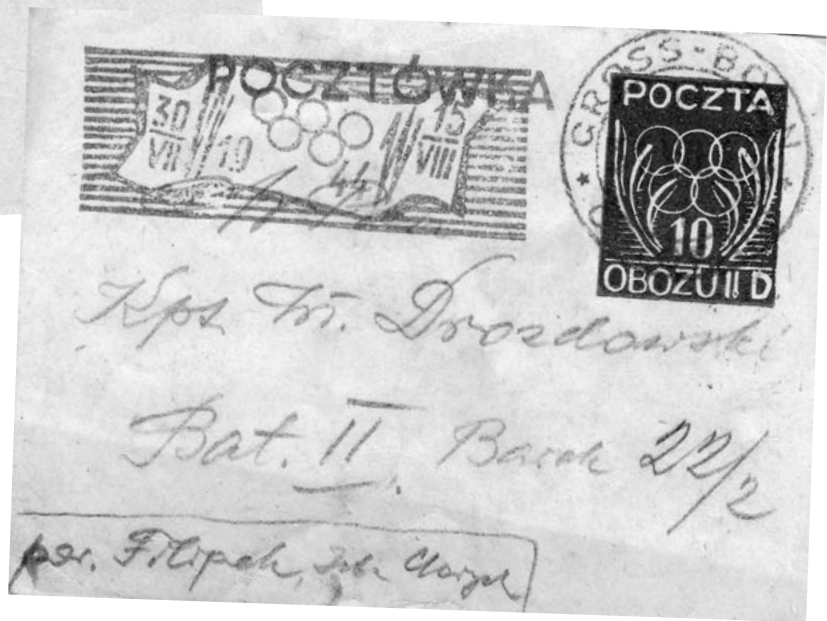 POCZTÓWKA
30 VII 19 44 15 VIII
GROSS-BO
POCZTA
10
OBOZU II D
Kpt. W. Drozdowski
Bat. II Barak 22/2
por. Filipek